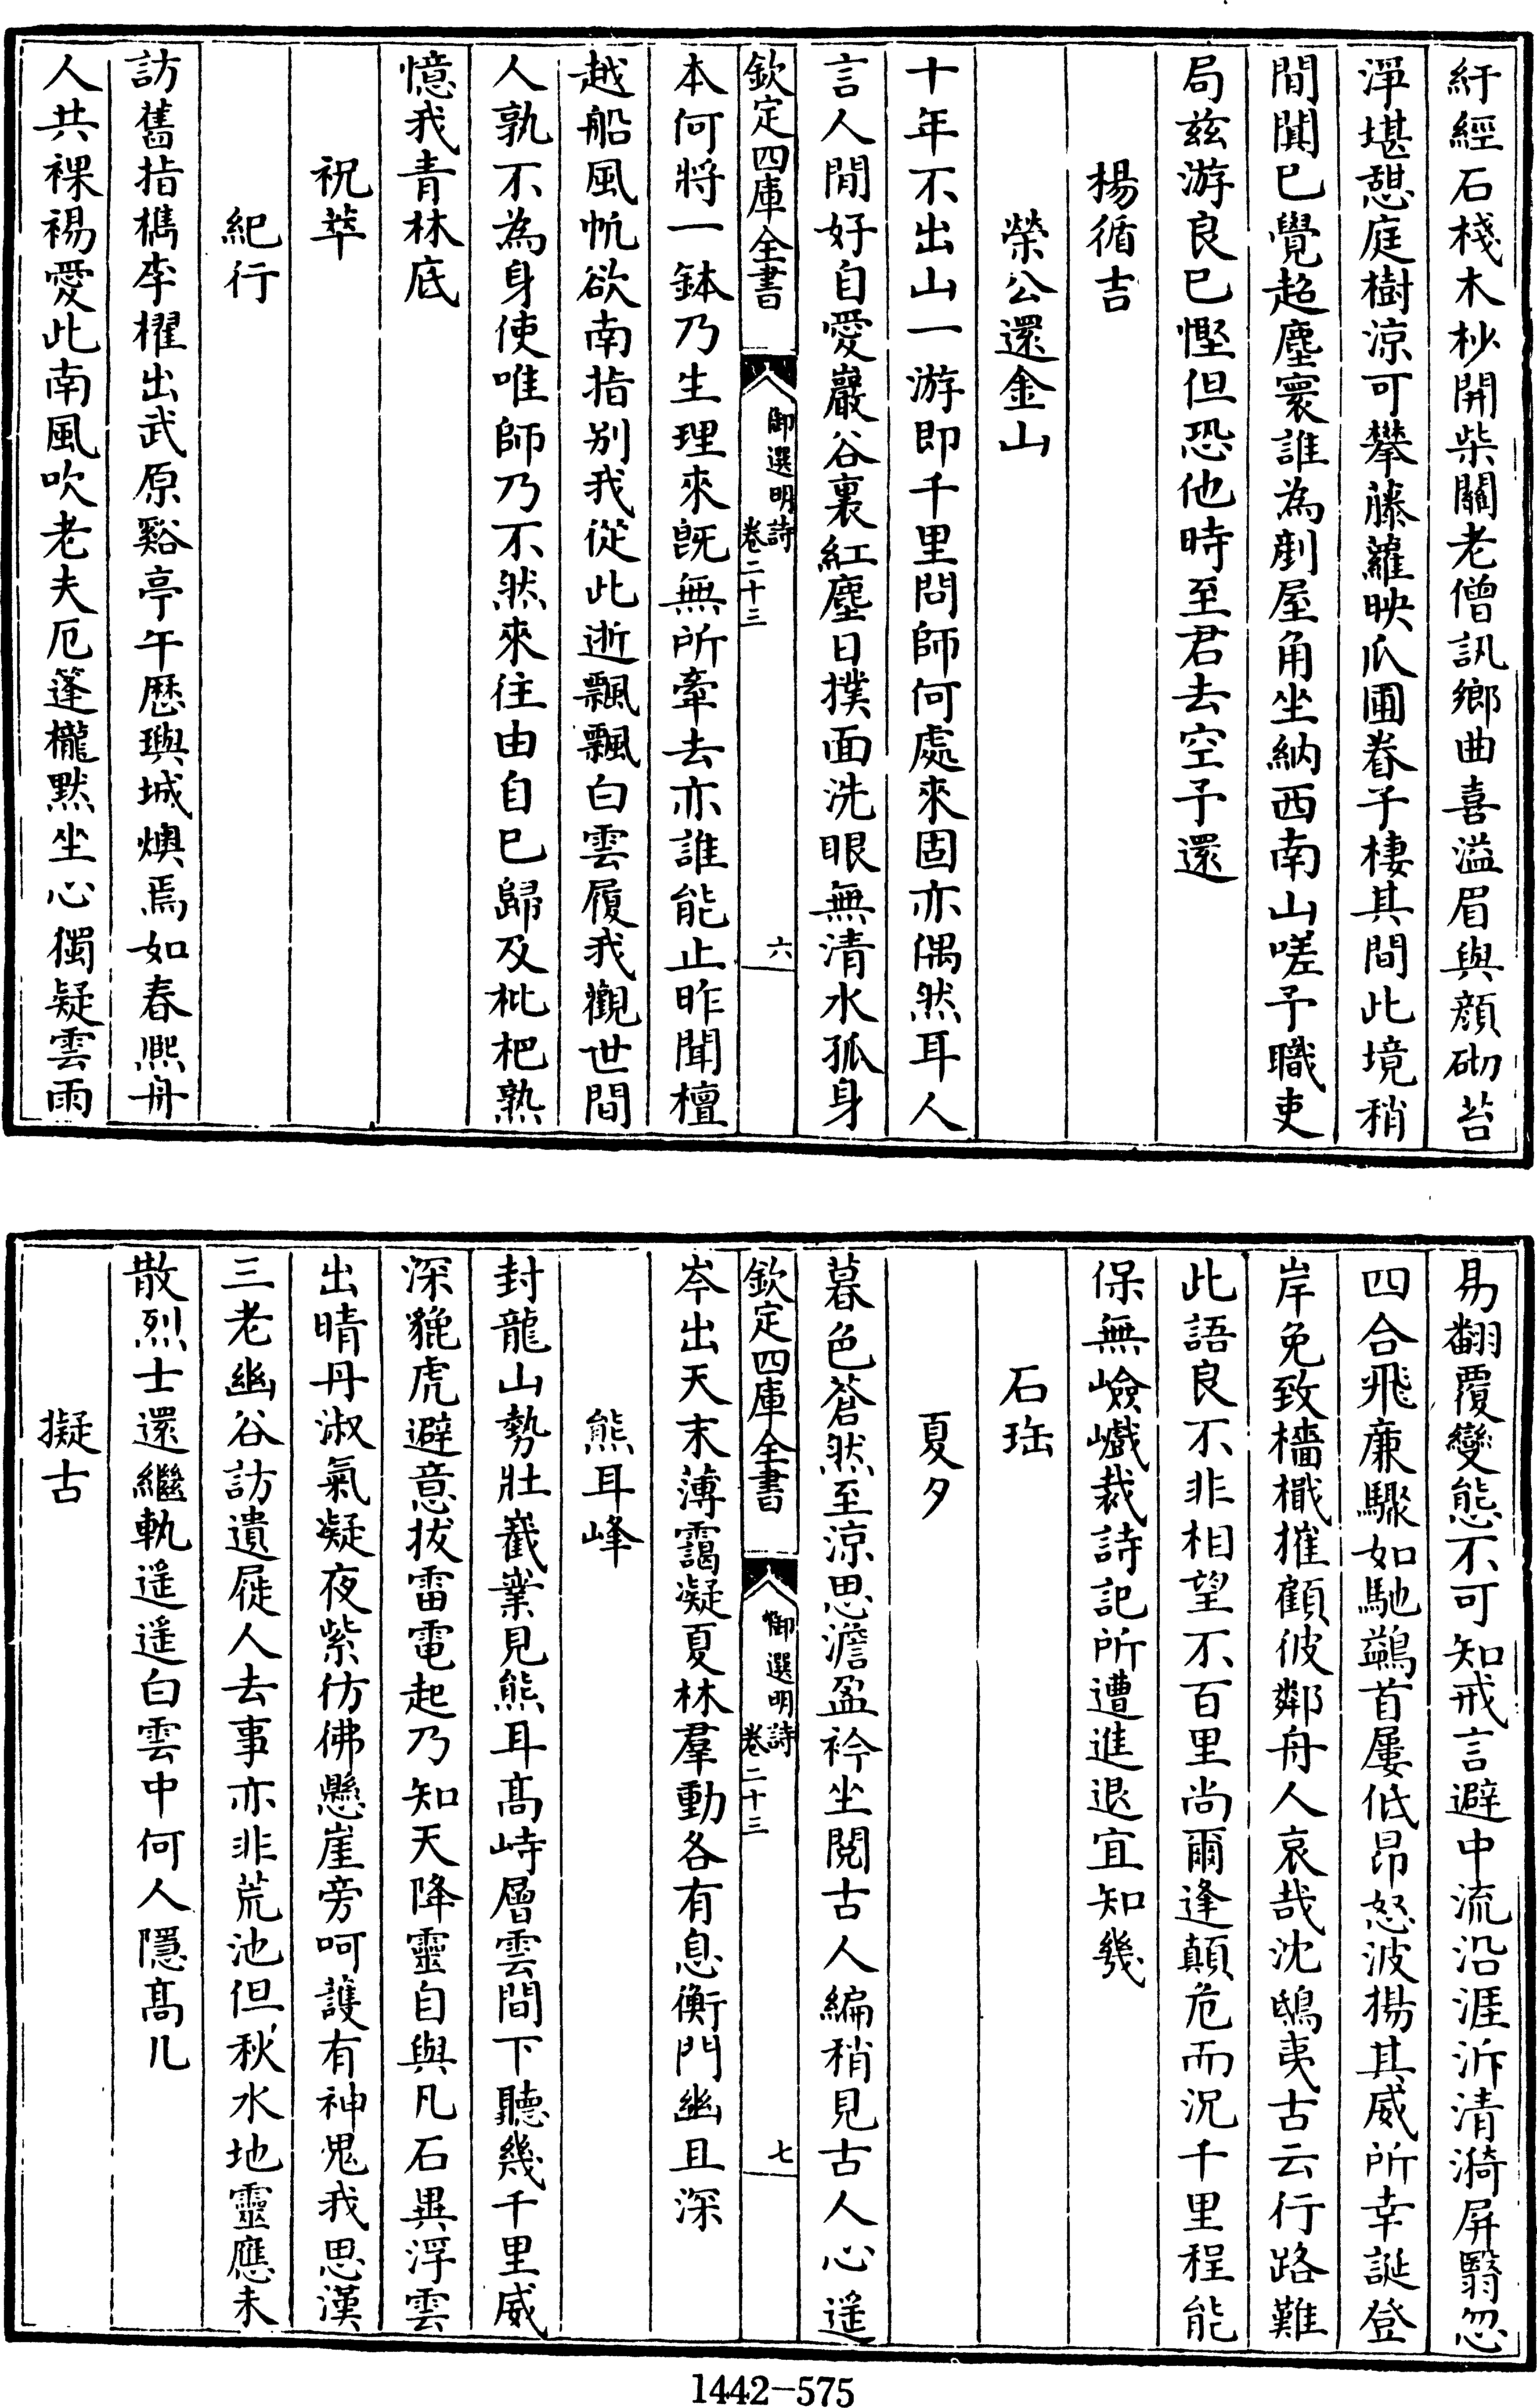 紆經石棧木杪開柴關老僧訊鄉曲喜溢眉與顔砌苔
淨堪憇庭樹涼可攀藤蘿映爪圃眷予棲其間此境稍
閒闃已覺超塵寰誰為剷屋角坐納西南山嗟予職吏
局兹游良已慳但恐他時至君去空予還
楊循吉
榮公還金山
十年不出山一游即千里問師何處來固亦偶然耳人
言人閒好自愛巖谷裏紅塵日撲面洗眼無清水孤身
欽定四庫全書
御選明詩
卷二十三
六
本何將一鉢乃生理來既無所牽去亦誰能止昨聞檀
越船風帆欲南指别我從此逝飄飄白雲履我觀世間
人孰不為身使唯師乃不然來往由自已歸及枇杷熟
憶我青林底
祝萃
紀行
訪舊指檇李櫂出武原谿亭午歴璵城燠焉如春熙舟
人共裸裼愛此南風吹老夫厄篷櫳默坐心獨疑雲雨
易翻覆變態不可知戒言避中流沿涯泝清漪屏翳忽
四合飛亷驟如馳鷁首屢低昂怒波揚其威所幸誕登
岸免致檣櫼摧顧彼鄰舟人哀哉沈鴟夷古云行路難
此語良不非相望不百里尚爾逢顛危而況千里程能
保無嶮巇裁詩記所遭進退宜知幾
石珤
夏夕
暮色蒼然至涼思澹盈衿坐閱古人編稍見古人心遥
欽定四庫全書
御選明詩
卷二十三
七
岑出天末薄靄凝夏林羣動各有息衡門幽且深
熊耳峰
封龍山勢壯嶻嶪見熊耳髙峙層雲間下聽幾千里威
深貔虎避意拔雷電起乃知天降靈自與凡石異浮雲
出晴丹淑氣凝夜紫彷彿懸崖旁呵護有神鬼我思漢
三老幽谷訪遺屣人去事亦非荒池但秋水地靈應未
散烈士還繼軌遥遥白雲中何人隱髙几
擬古
1442-575